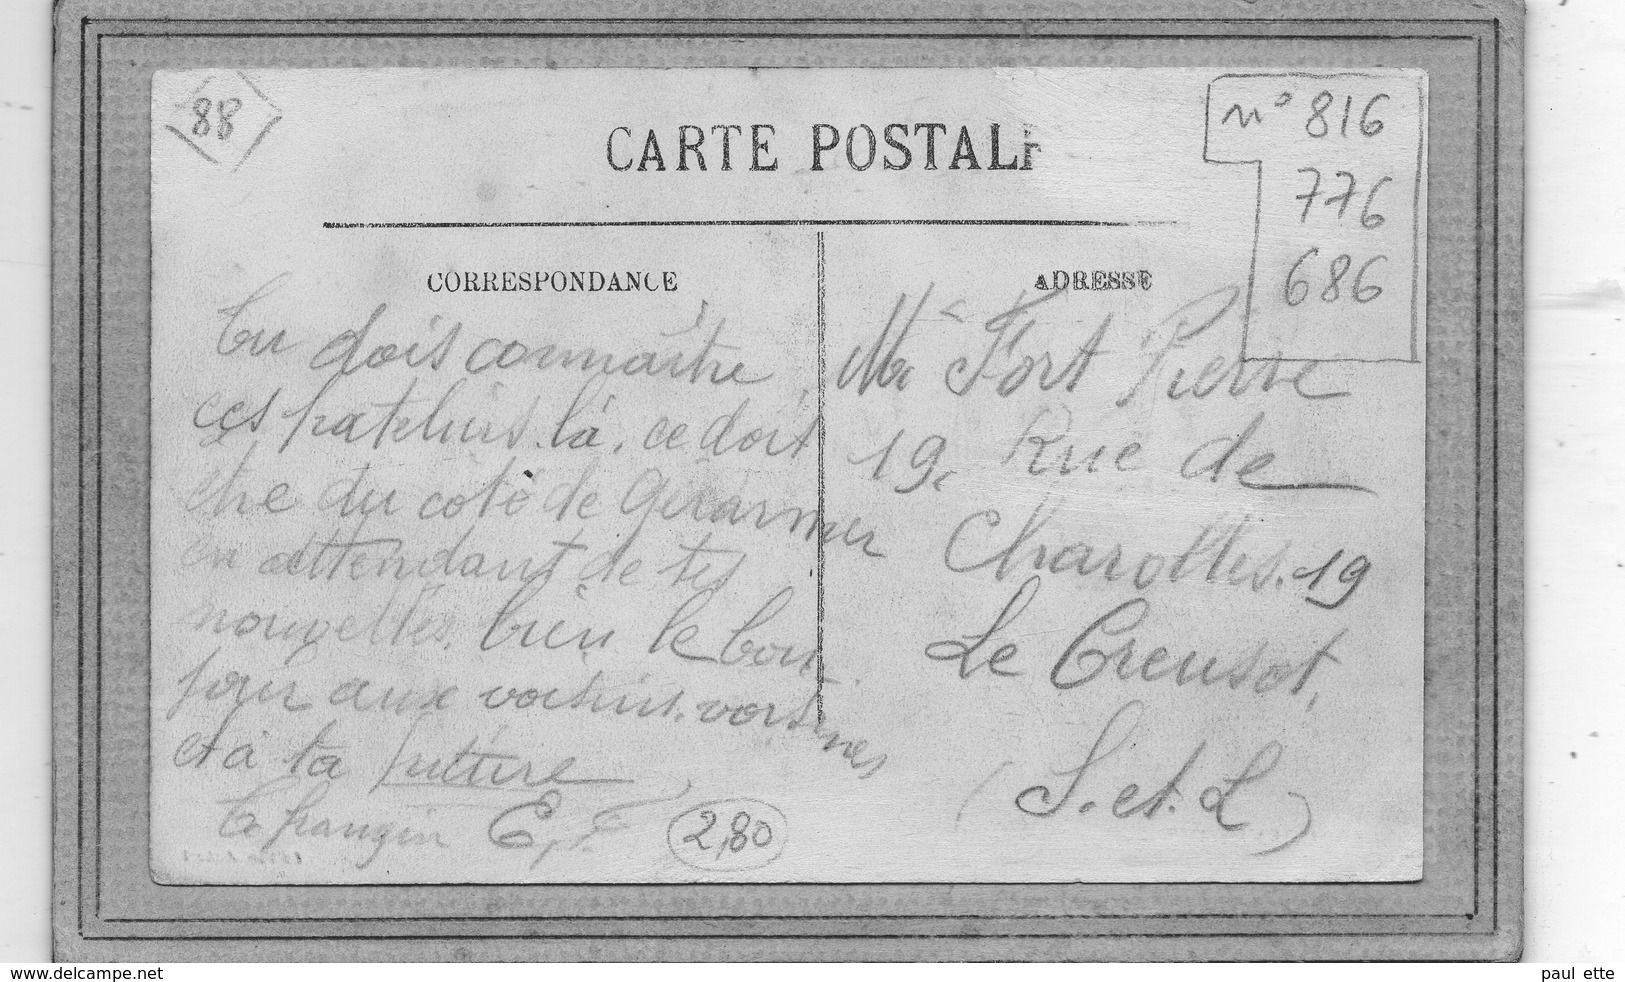 88
CARTE POSTALE
n° 816
776
686
CORRESPONDANCE
Tu dois connaître
ces patelins là, ce doit
être du coté de Gérarmer
en attendant de tes
nouvelles. bien le bon
jour aux voisins. voisines
et à ta future
Le frangin E. F.
2,80
ADRESSE
Mr Fort Pierre
19, Rue de
Charolles. 19
Le Creusot,
(S. et. L)
www.delcampe.net
paul ette